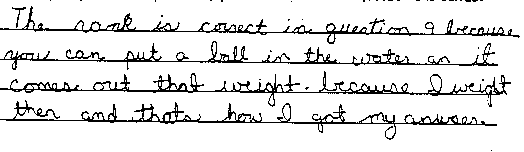 The rank is corect in question 9 because
you can put a ball in the water an it
comes out that weight. because I weight
then and thats how I got my answer.